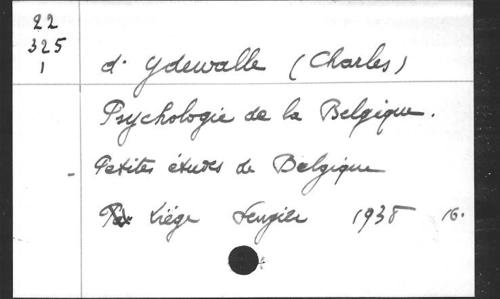 22
325
1
d'Ydewalle (Charles)
Psychologie de la Belgique.
Petites études de Belgique
Liége 1938 16.